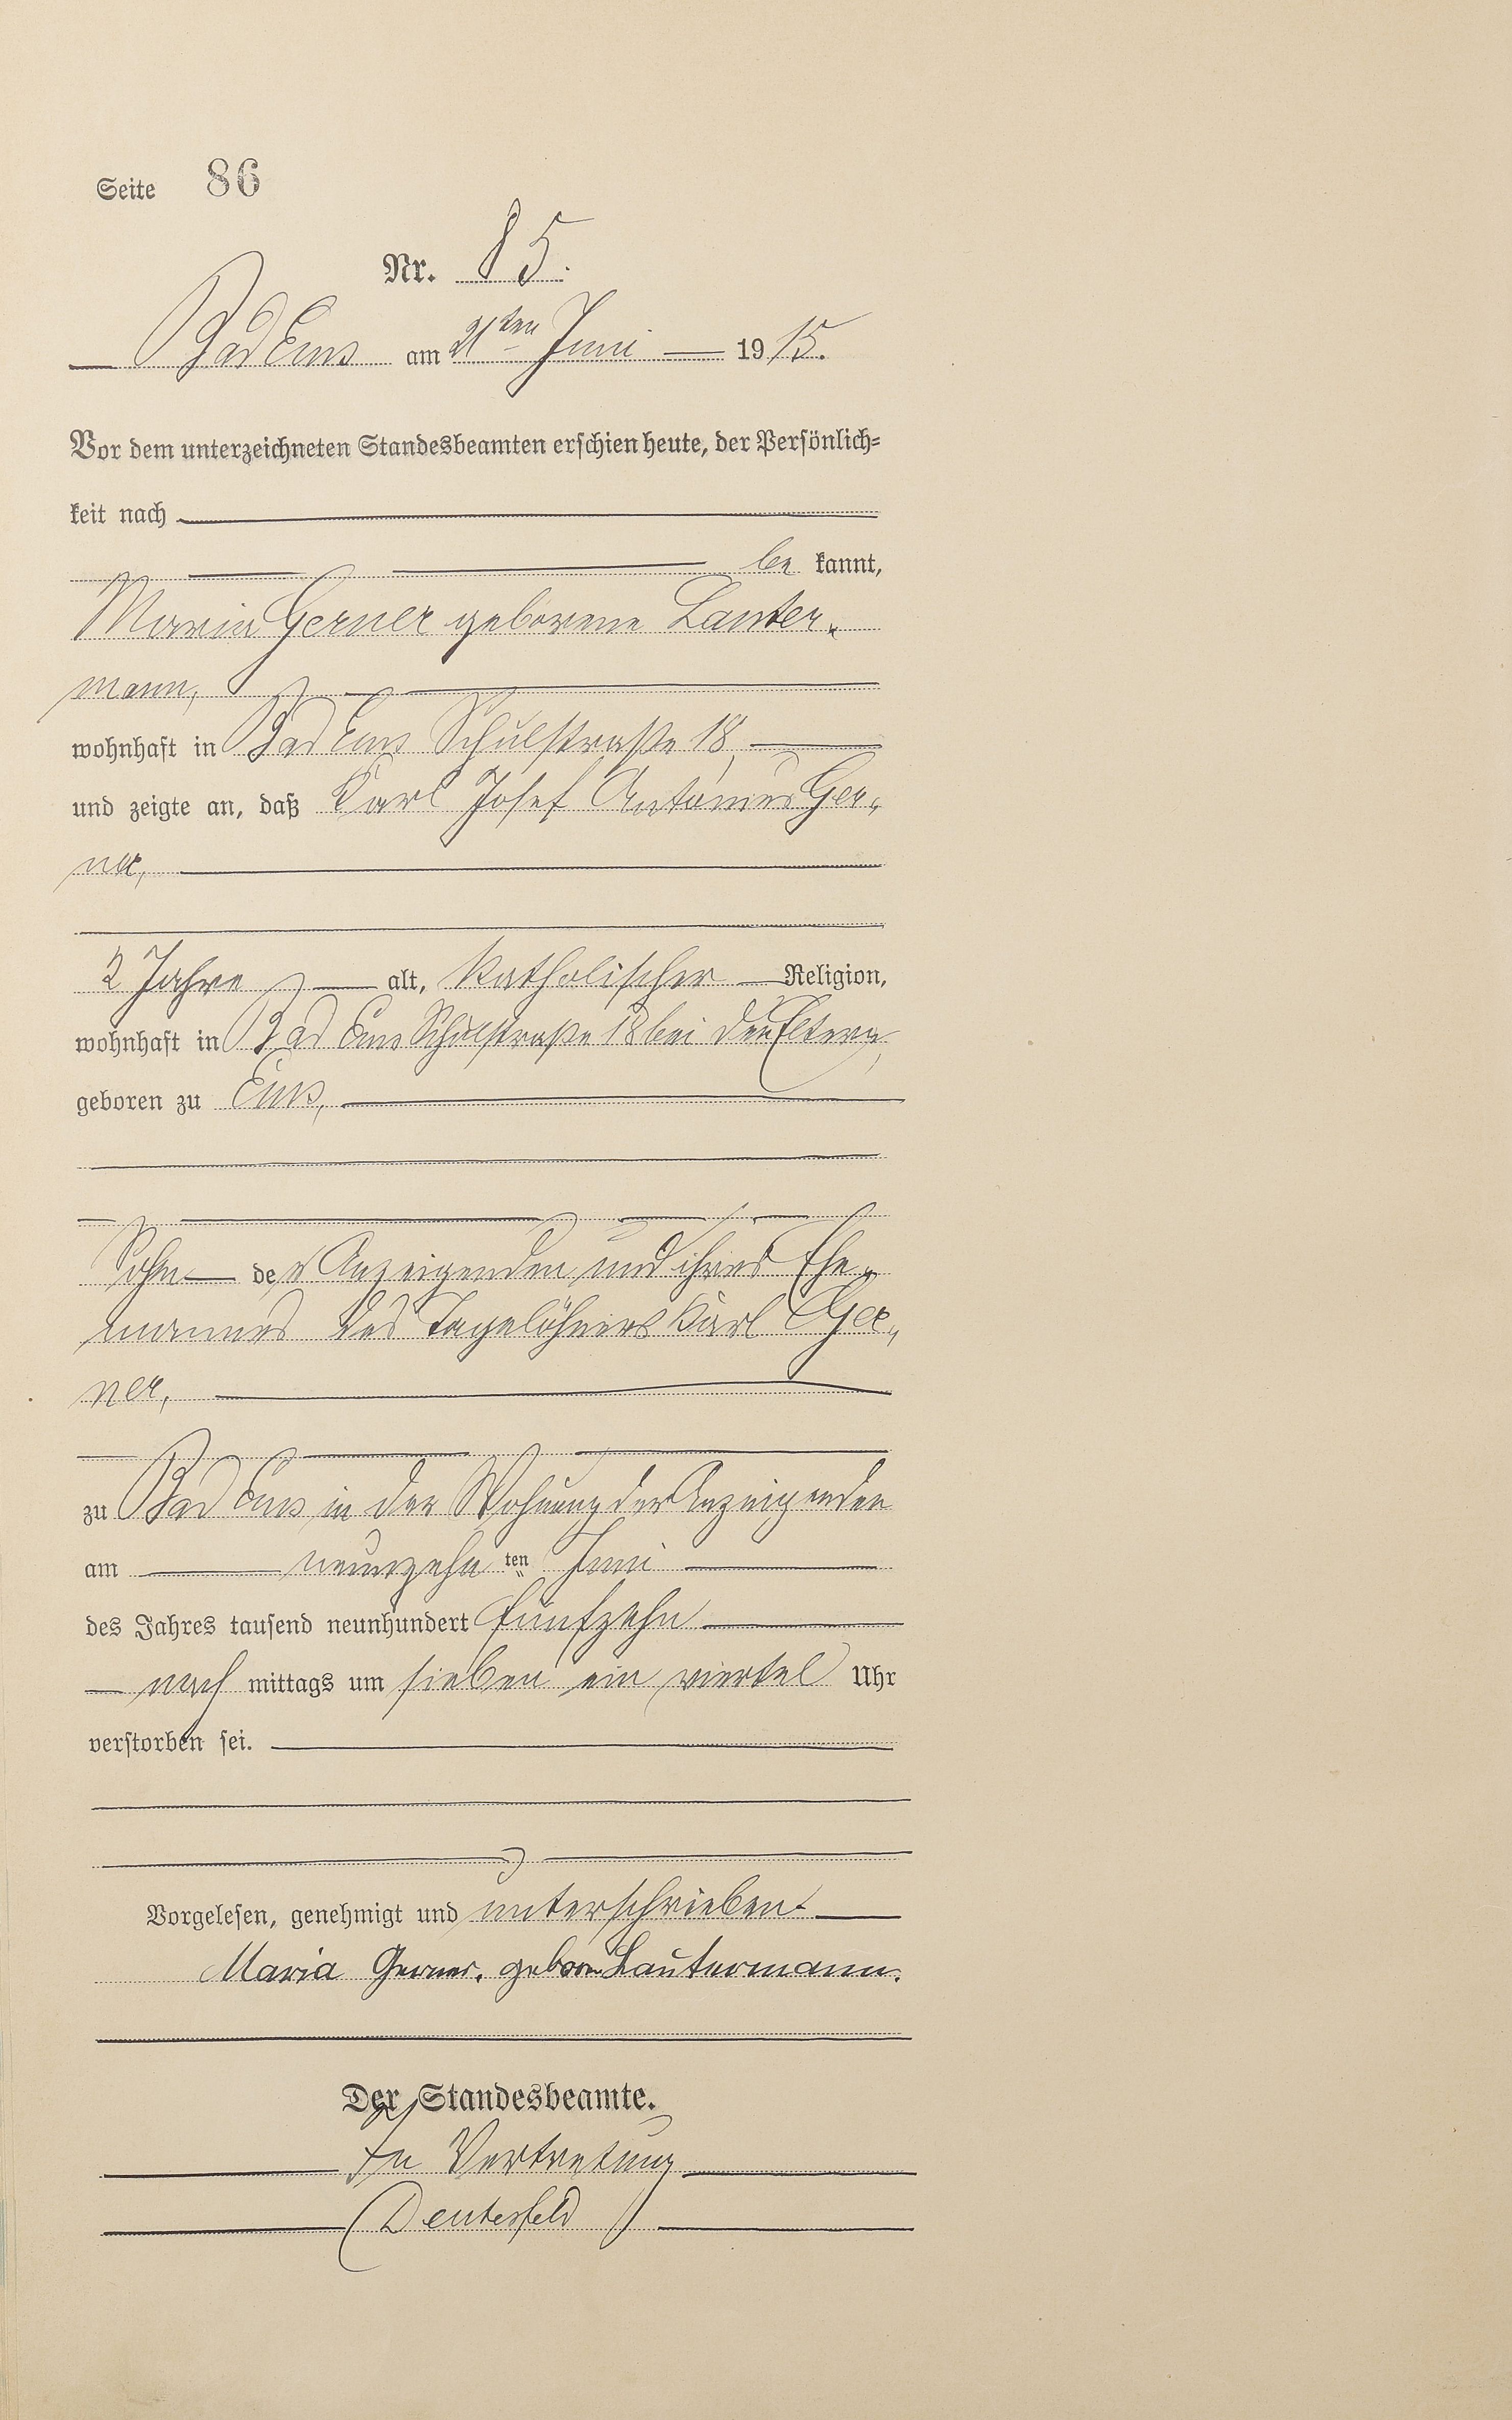 Seite 86
Nr. 85.
Bad Ems am 21ten Juni 1915.
Vor dem unterzeichneten Standesbeamten erschien heute, der Persönlich=
keit nach
be kannt,
Maria Gerner geborene Lauter„
mann,
wohnhaft in Bad Ems Schulstraße 18,
und zeigte an, daß Karl Josef Antonius Ger„
ner,
2 Jahre alt, katholischer Religion,
wohnhaft in Bad Ems Schulstraße 18 bei den Eltern,
geboren zu Ems,
Sohn der Anzeigenden und ihres Ehe„
mannes des Tagelöhners Karl Ger„
ner,
zu Bad Ems in der Wohnung der Anzeigenden
am neunzehn ten Juni
des Jahres tausend neunhundert fünfzehn
nach mittags um sieben ein viertel Uhr
verstorben sei.
Vorgelesen, genehmigt und unterschrieben.
Maria Gerner. geborn Lautermann.
Der Standesbeamte.
In Vertretung
(Deutesfeld)